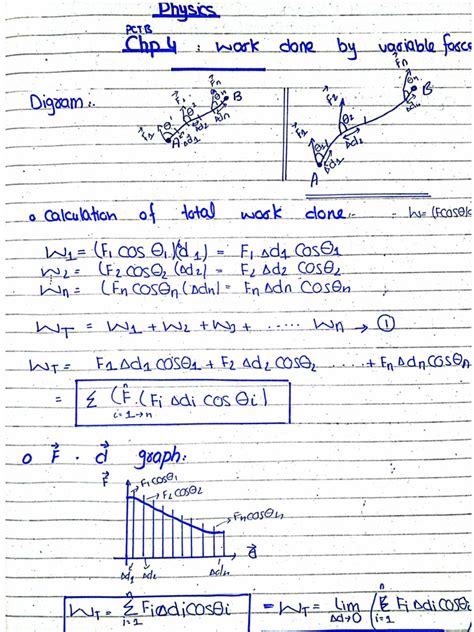 Physics
PCTB
Chp 4 : work done by variable force
Digram:.
F₁ θ' F₁ θ² Fn θn B
A Δd₁ Δd₂ Δdn
F₁ θ₁ F₂ θ₂ Fn θn B
A Δd₁ Δd₂ Δdn
o Calculation of total work done:- W=(Fcosθ)(
W₁ = (F₁ cos θ₁)(d₁) = F₁ Δd₁ Cosθ₁
W₂ = (F₂ cosθ₂ (Δd₂) = F₂ Δd₂ Cosθ₂
Wn = (Fn cosθn (Δdn) = Fn Δdn Cosθn
W_T = W₁ + W₂ + W₃ + ..... Wn → ①
W_T = F₁Δd₁cosθ₁ + F₂ Δd₂cosθ₂ ..... + FnΔdncosθn
= Σ i=1→n (F.(Fi Δdi cos θi)
o F⃗ . d⃗ graph:
F⃗ → F₁cosθ₁
→ F₂cosθ₂
→ Fncosθn
d⃗
Δd₁ Δd₂ Δdn
W_T = Σⁿ i=1 FiΔdicosθi = W_T = Lim Δd→0 (Σ i=1 Fi Δdicosθi